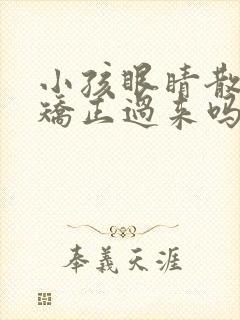 小孩眼睛散
矫正过来吗
奉义天涯